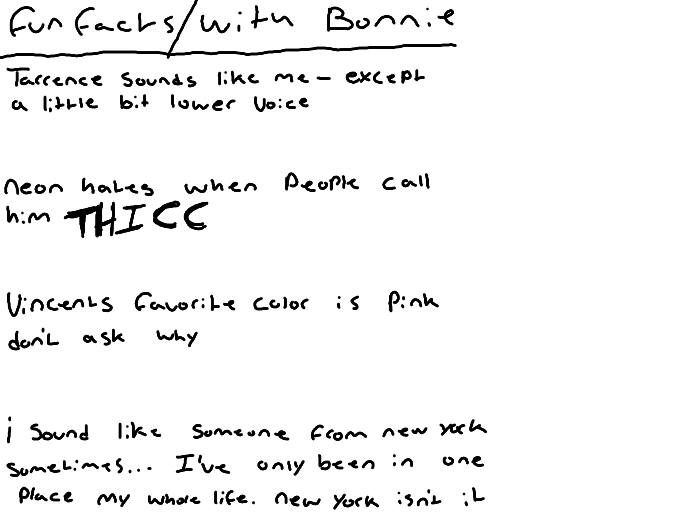 Fun Facts/with Bonnie
Tarrence sounds like me - except
a little bit lower voice
neon hates when people call
him THICC
Vincents favorite color is pink
don't ask why
i sound like someone from new york
sometimes... I've only been in one
place my whole life. new york isn't it